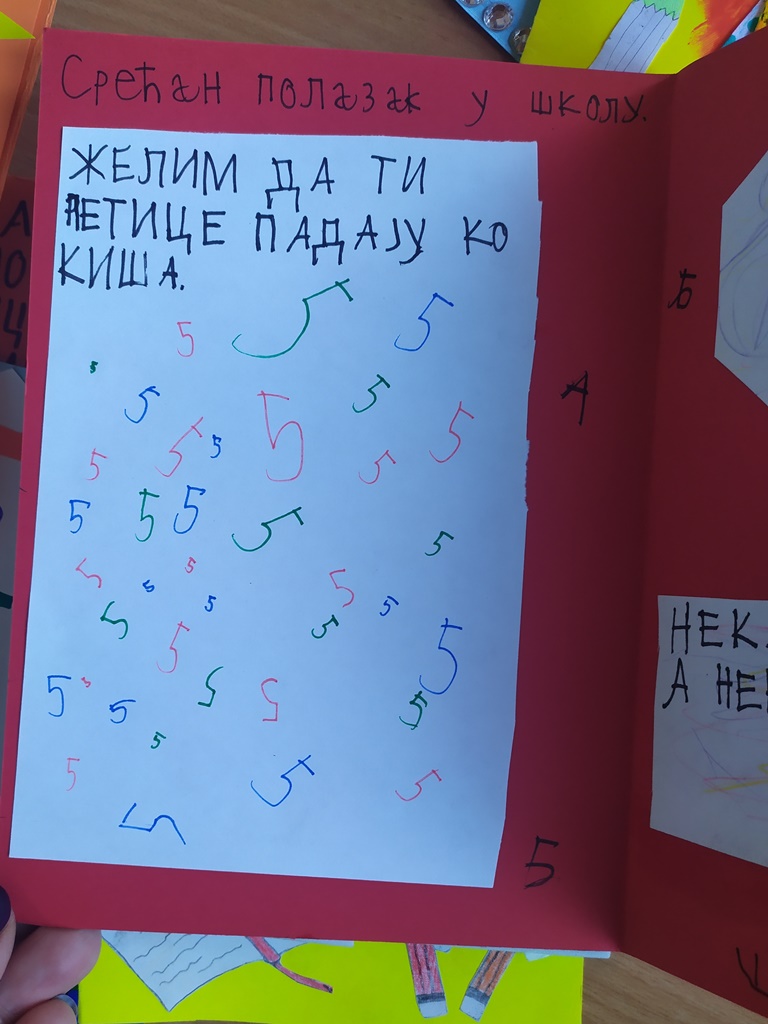 Срећан полазак у школу.
ЖЕЛИМ ДА ТИ
ПЕТИЦЕ ПАДАЈУ КО
КИША.
5 5 5
5
5 5
5 5 5 5
5 5
5 5 5 5 5
5 5
5 5 5 5
5 5 5 5
5 5 5 5
5 5 5 5 5
5
5 5 5
5
А
Б
5
НЕК
А НЕ